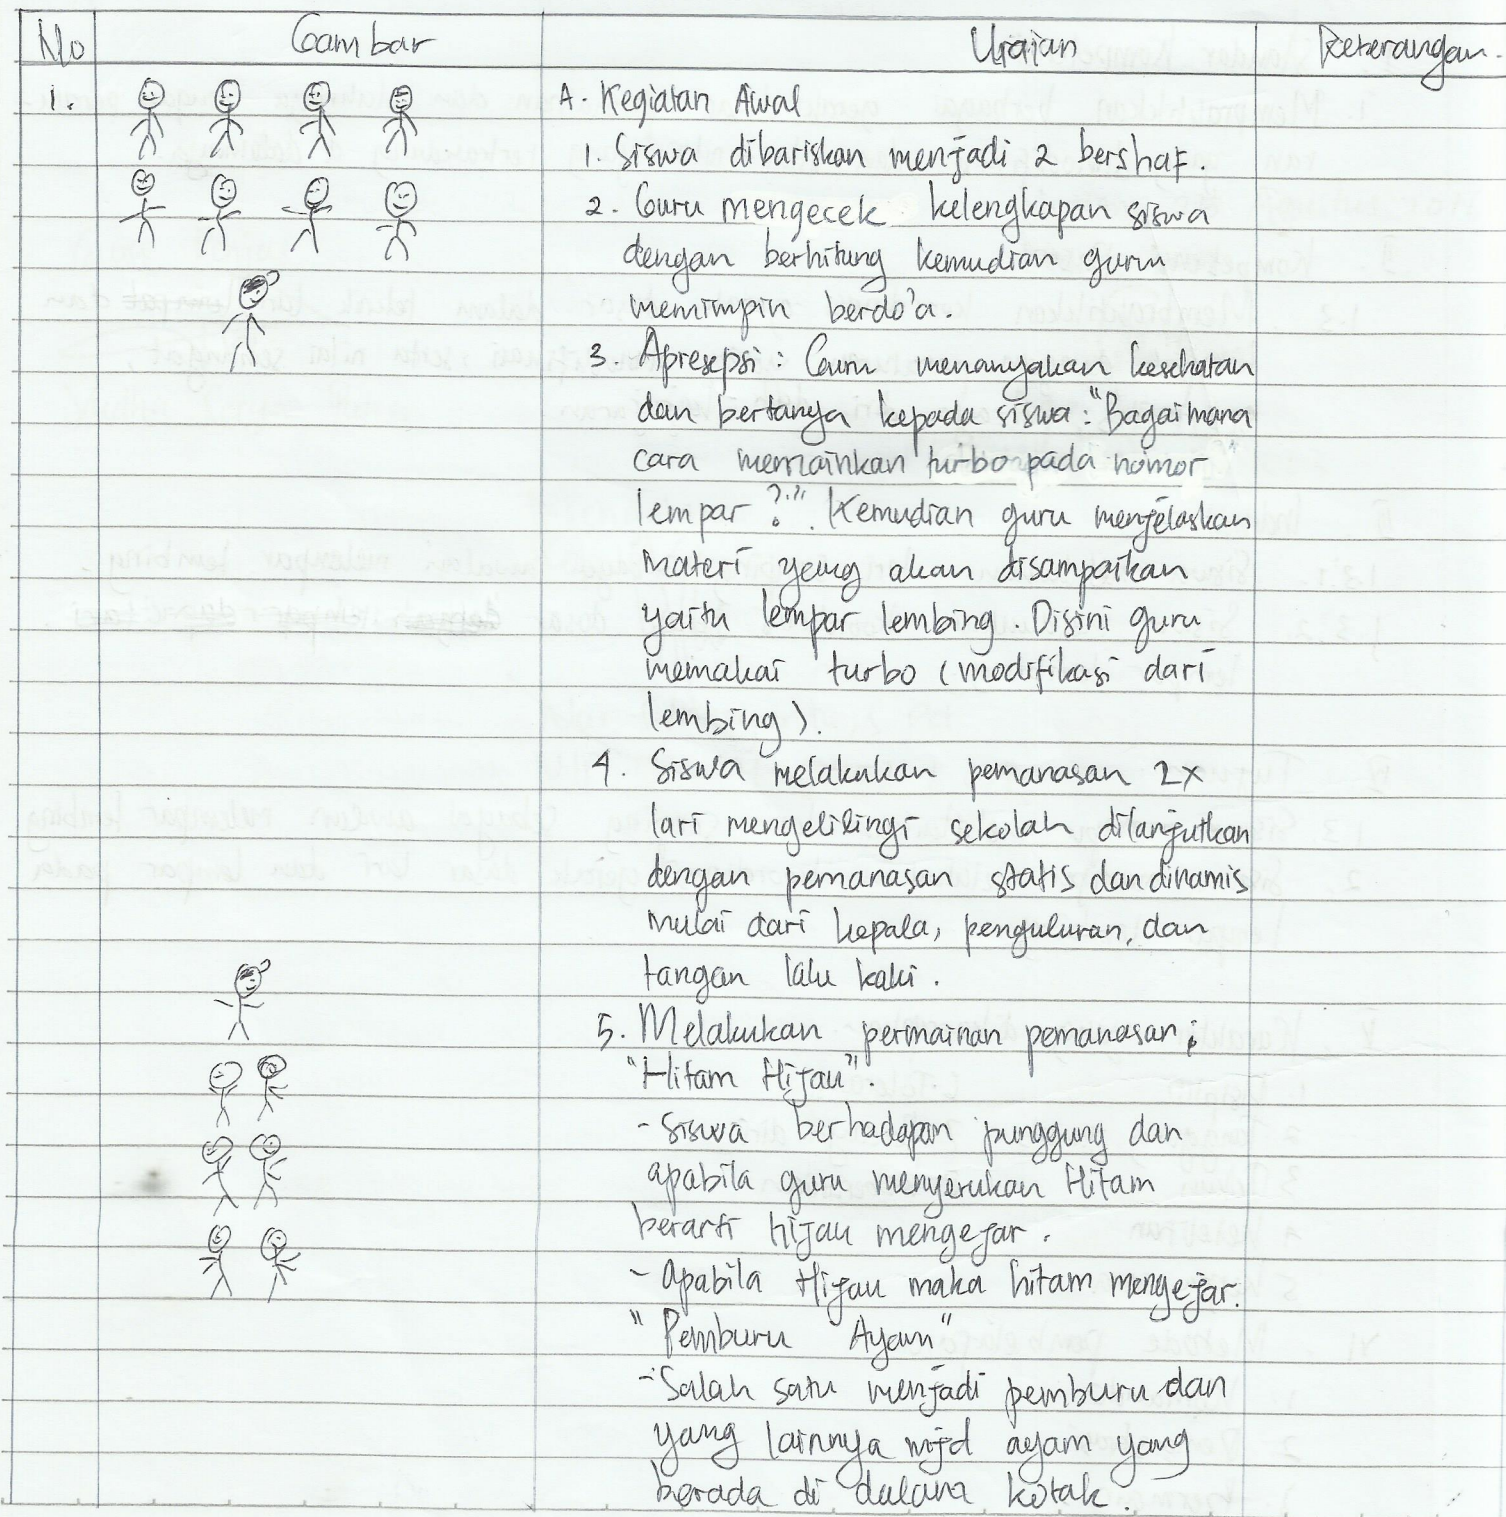 No Gambar Uraian Keterangan.
1. A. Kegiatan Awal
1. Siswa dibariskan menjadi 2 bershaf.
2. Guru mengecek kelengkapan siswa
dengan berhitung kemudian guru
memimpin berdo'a.
3. Apresepsi : Guru menanyakan kesehatan
dan bertanya kepada siswa : "Bagaimana
cara memainkan turbo pada nomor
lempar ?". Kemudian guru menjelaskan
materi yang akan disampaikan
yaitu lempar lembing. Disini guru
memakai turbo (modifikasi dari
lembing).
4. Siswa melakukan pemanasan 2x
lari mengelilingi sekolah dilanjutkan
dengan pemanasan statis dan dinamis
mulai dari kepala, penguluran, dan
tangan lalu kaki.
5. Melakukan permainan pemanasan :
"Hitam Hijau".
- Siswa berhadapan punggung dan
apabila guru menyerukan Hitam
berarti hijau mengejar.
- apabila Hijau maka hitam mengejar.
"Pemburu Ayam"
- Salah satu menjadi pemburu dan
yang lainnya mjd ayam yang
berada di dalam kotak.